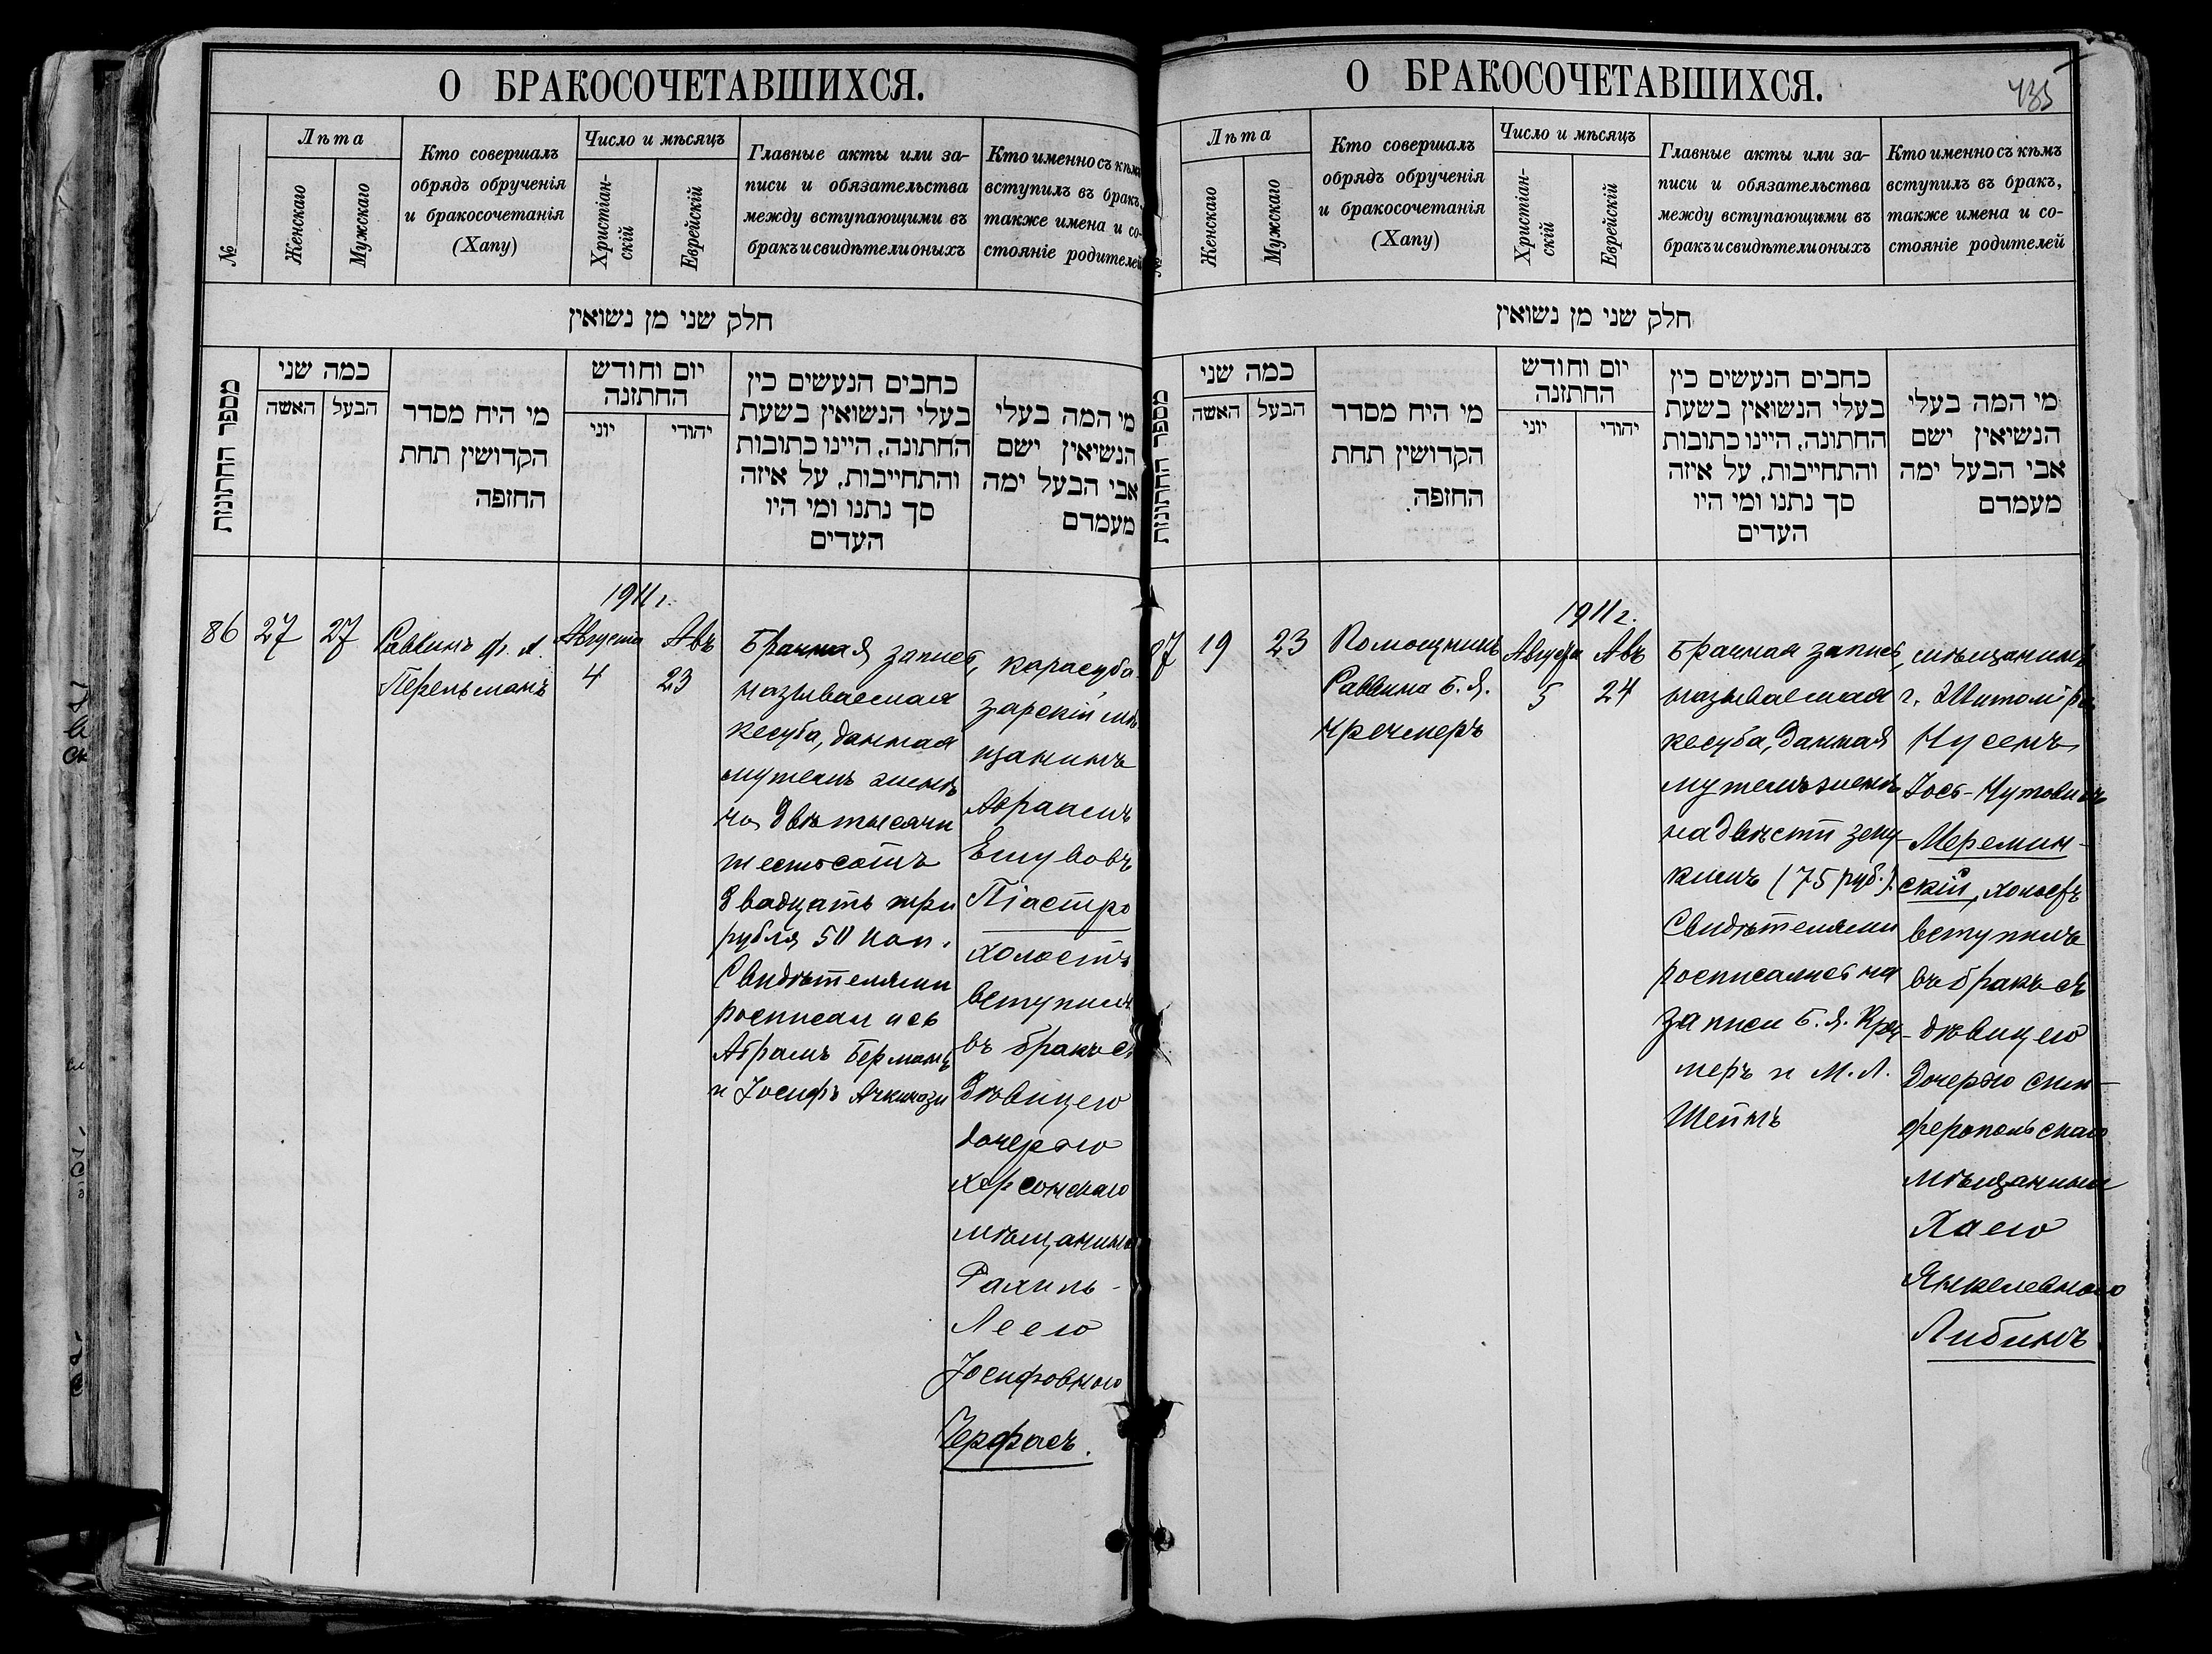 О БРАКОСОЧЕТАВШИХСЯ.
№
Лѣта
Женскаго
Мужскаго
Кто совершалъ
обрядъ обрученія
и бракосочетанія
(Хапу)
Число и мѣсяцъ
Христіан-
скій
Еврейскій
Главные акты или за-
писи и обязательства
между вступающими въ
бракъ и свидѣтели оныхъ
Кто именно съ кѣмъ
вступилъ въ бракъ,
также имена и со-
стояніе родителей
חלק שני מן נשואין
מספר החתונות
כמה שני
האשה
הבעל
מי היח מסדר
הקדושין תחת
החזפה
יום וחודש
החתזנה
יוני
יהודי
כחבים הנעשים כין
בעלי הנשואין בשעת
החתונה, היינו כתובות
והתחייבות, על איזה
סך נתנו ומי היו
העדים
מי המה בעלי
הנשיאין ישם
אבי הבעל ימה
מעמדם
86
27
27
Раввинъ Ф. Л.
Перельманъ
1911 г.
Августа
4
Авъ
23
Брачная запись,
называемая
кесуба, данная
мужемъ женѣ
на двѣ тысячи
шестьсотъ
двадцать три
рубля 50 коп.
Свидѣтелями
росписались
Абрамъ Берманъ
и Іосифъ Ачкинази
карасуба-
зарскій мѣ-
щанинъ
Авраамъ
Ешувовъ
Піастро
холостъ
вступилъ
въ бракъ съ
дѣвицею
дочерью
херсонскаго
мѣщанина
Рахиль-
Леею
Іосифовною
Черфасъ.
О БРАКОСОЧЕТАВШИХСЯ.
435
№
Лѣта
Женскаго
Мужскаго
Кто совершалъ
обрядъ обрученія
и бракосочетанія
(Хапу)
Число и мѣсяцъ
Христіан-
скій
Еврейскій
Главные акты или за-
писи и обязательства
между вступающими въ
бракъ и свидѣтели оныхъ
Кто именно съ кѣмъ
вступилъ въ бракъ,
также имена и со-
стояніе родителей
חלק שני מן נשואין
מספר החתונות
כמה שני
האשה
הבעל
מי היח מסדר
הקדושין תחת
החזפה.
יום וחודש
החתזנה
יוני
יהודי
כחבים הנעשים כין
בעלי הנשואין בשעת
החתונה, היינו כתובות
והתחייבות, על איזה
סך נתנו ומי היו
העדים
מי המה בעלי
הנשיאין ישם
אבי הבעל ימה
מעמדם
87
19
23
Помощникъ
Раввина Б. Я.
Кречмеръ
1911 г.
Августа
5
Авъ
24
Брачная запись,
называемая
кесуба, данная
мужемъ женѣ
на двѣсти зецу-
кимъ (75 руб.).
Свидѣтелями
росписались на
записи Б. Я. Креч-
меръ и М. Л.
Шейнъ
мѣщанинъ
г. Житоміра
Нусенъ
Іось-Нутовичъ
Меремин-
скій, холостъ
вступилъ
въ бракъ съ
дѣвицею
дочерью сим-
феропольскаго
мѣщанина
Хаею
Янкелевною
Либинъ